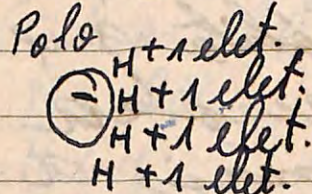 Polo
H + 1 elet.
− H + 1 elet.
H + 1 elet.
H + 1 elet.